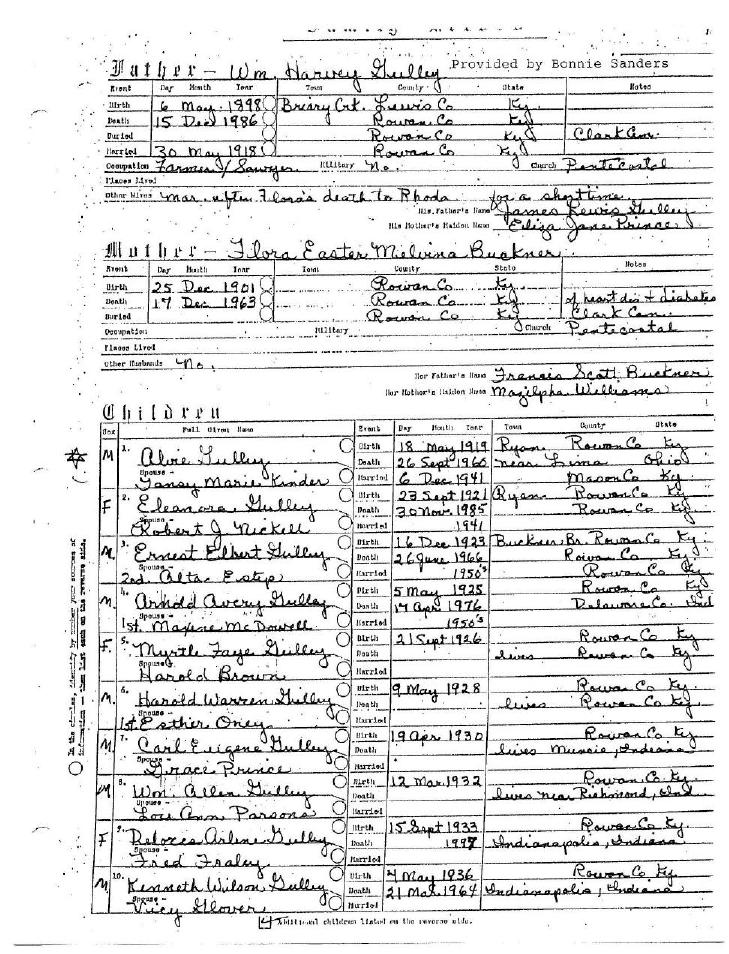 Father - Wm. Harvey Gulley Provided by Bonnie Sanders
Event Day Month Year Town County State Notes
Birth 6 May 1898 Briary Crk. Lewis Co Ky.
Death 15 Dec 1986 Rowan Co Ky
Buried Rowan Co Ky Clark Cem.
Married 30 May 1918 Rowan Co Ky
Occupation Farmer / Sawyer Military No. Church Pentecostal
Places Lived
Other Wives Mar. after Flora's death to Rhoda for a short time.
His Father's Name James Lewis Gulley
His Mother's Maiden Name Eliza Jane Prince
Mother - Flora Easter Melvina Buckner
Event Day Month Year Town County State Notes
Birth 25 Dec 1901 Rowan Co. Ky.
Death 17 Dec 1963 Rowan Co Ky of heart dis + diabetes
Buried Rowan Co Ky Clark Cem.
Occupation Military Church Pentecostal
Places Lived
Other Husbands No.
Her Father's Name Francis Scott Buckner
Her Mother's Maiden Name Mazilpha Williams
Children
Sex Full Given Name Event Day Month Year Town County State
M 1. Alvie Gulley Birth 18 May 1919 Ryan Rowan Co Ky
Death 26 Sept 1960 near Lima Ohio
Spouse - Tansy Marie Kinder Married 6 Dec 1941 Mason Co Ky
F 2. Eleanora Gulley Birth 23 Sept 1921 Ryan Rowan Co Ky
Death 30 Nov. 1985 Rowan Co Ky
Spouse - Robert J Nickell Married 1941
M 3. Ernest Elbert Gulley Birth 16 Dec 1923 Buckner Br. Rowan Co Ky.
Death 26 June 1966 Rowan Co Ky
Spouse - 2nd. Alta Estep Married 1950's Rowan Co Ky
M. 4. Arnold Avery Gulley Birth 5 May 1925 Rowan Co Ky
Death 17 Apr 1976 Delaware Co. Ind
Spouse - 1st. Maxine McDowell Married 1950's
F. 5. Myrtle Faye Gulley Birth 21 Sept 1926 Rowan Co Ky
Death lives Rowan Co Ky
Spouse Harold Brown Married
M. 6. Harold Warren Gulley Birth 9 May 1928 Rowan Co Ky
Death lives Rowan Co Ky
Spouse - 1st Esther Oney Married
M 7. Carl Eugene Gulley Birth 19 Apr 1930 Rowan Co Ky
Death lives Muncie, Indiana
Spouse - Grace Prince Married
M 8. Wm. Allen Gulley Birth 12 Mar. 1932 Rowan Co. Ky.
Death lives near Richmond, Ind
Spouse - Lou Ann Parsons Married
F 9. Delores Arlene Gulley Birth 15 Sept 1933 Rowan Co Ky.
Death 1997 Indianapolis, Indiana
Spouse - Fred Fraley Married
M 10. Kenneth Wilson Gulley Birth 4 May 1936 Rowan Co Ky.
Death 21 Mar. 1964 Indianapolis, Indiana
Spouse - Vicy Glover Married
Additional children listed on the reverse side.
In the circles, identify by number your sources of
information - then list each on the reverse side.